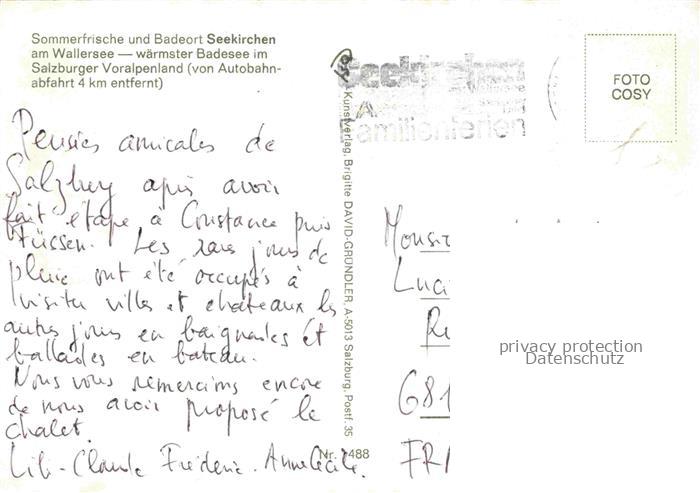 Sommerfrische und Badeort Seekirchen
am Wallersee — wärmster Badesee im
Salzburger Voralpenland (von Autobahn-
abfahrt 4 km entfernt)
Pensées amicales de
Salzburg après avoir
fait étape à Constance puis
Füssen. Les rares jours de
pluie ont été occupés à
visiter villes et chateaux les
autres jours en baignades et
ballades en bateau.
Nous vous remercions encore
de nous avoir proposé le
chalet.
Lili-Claude Frédéric. Anne Cécile.
Seekirchen
Familienferien
Cosy
Kunstverlag, Brigitte DAVID-GRÜNDLER, A-5013 Salzburg, Postf. 35
Nr. 488
FOTO
COSY
Monsie
Luci
Ru
681
FRA
privacy protection
Datenschutz